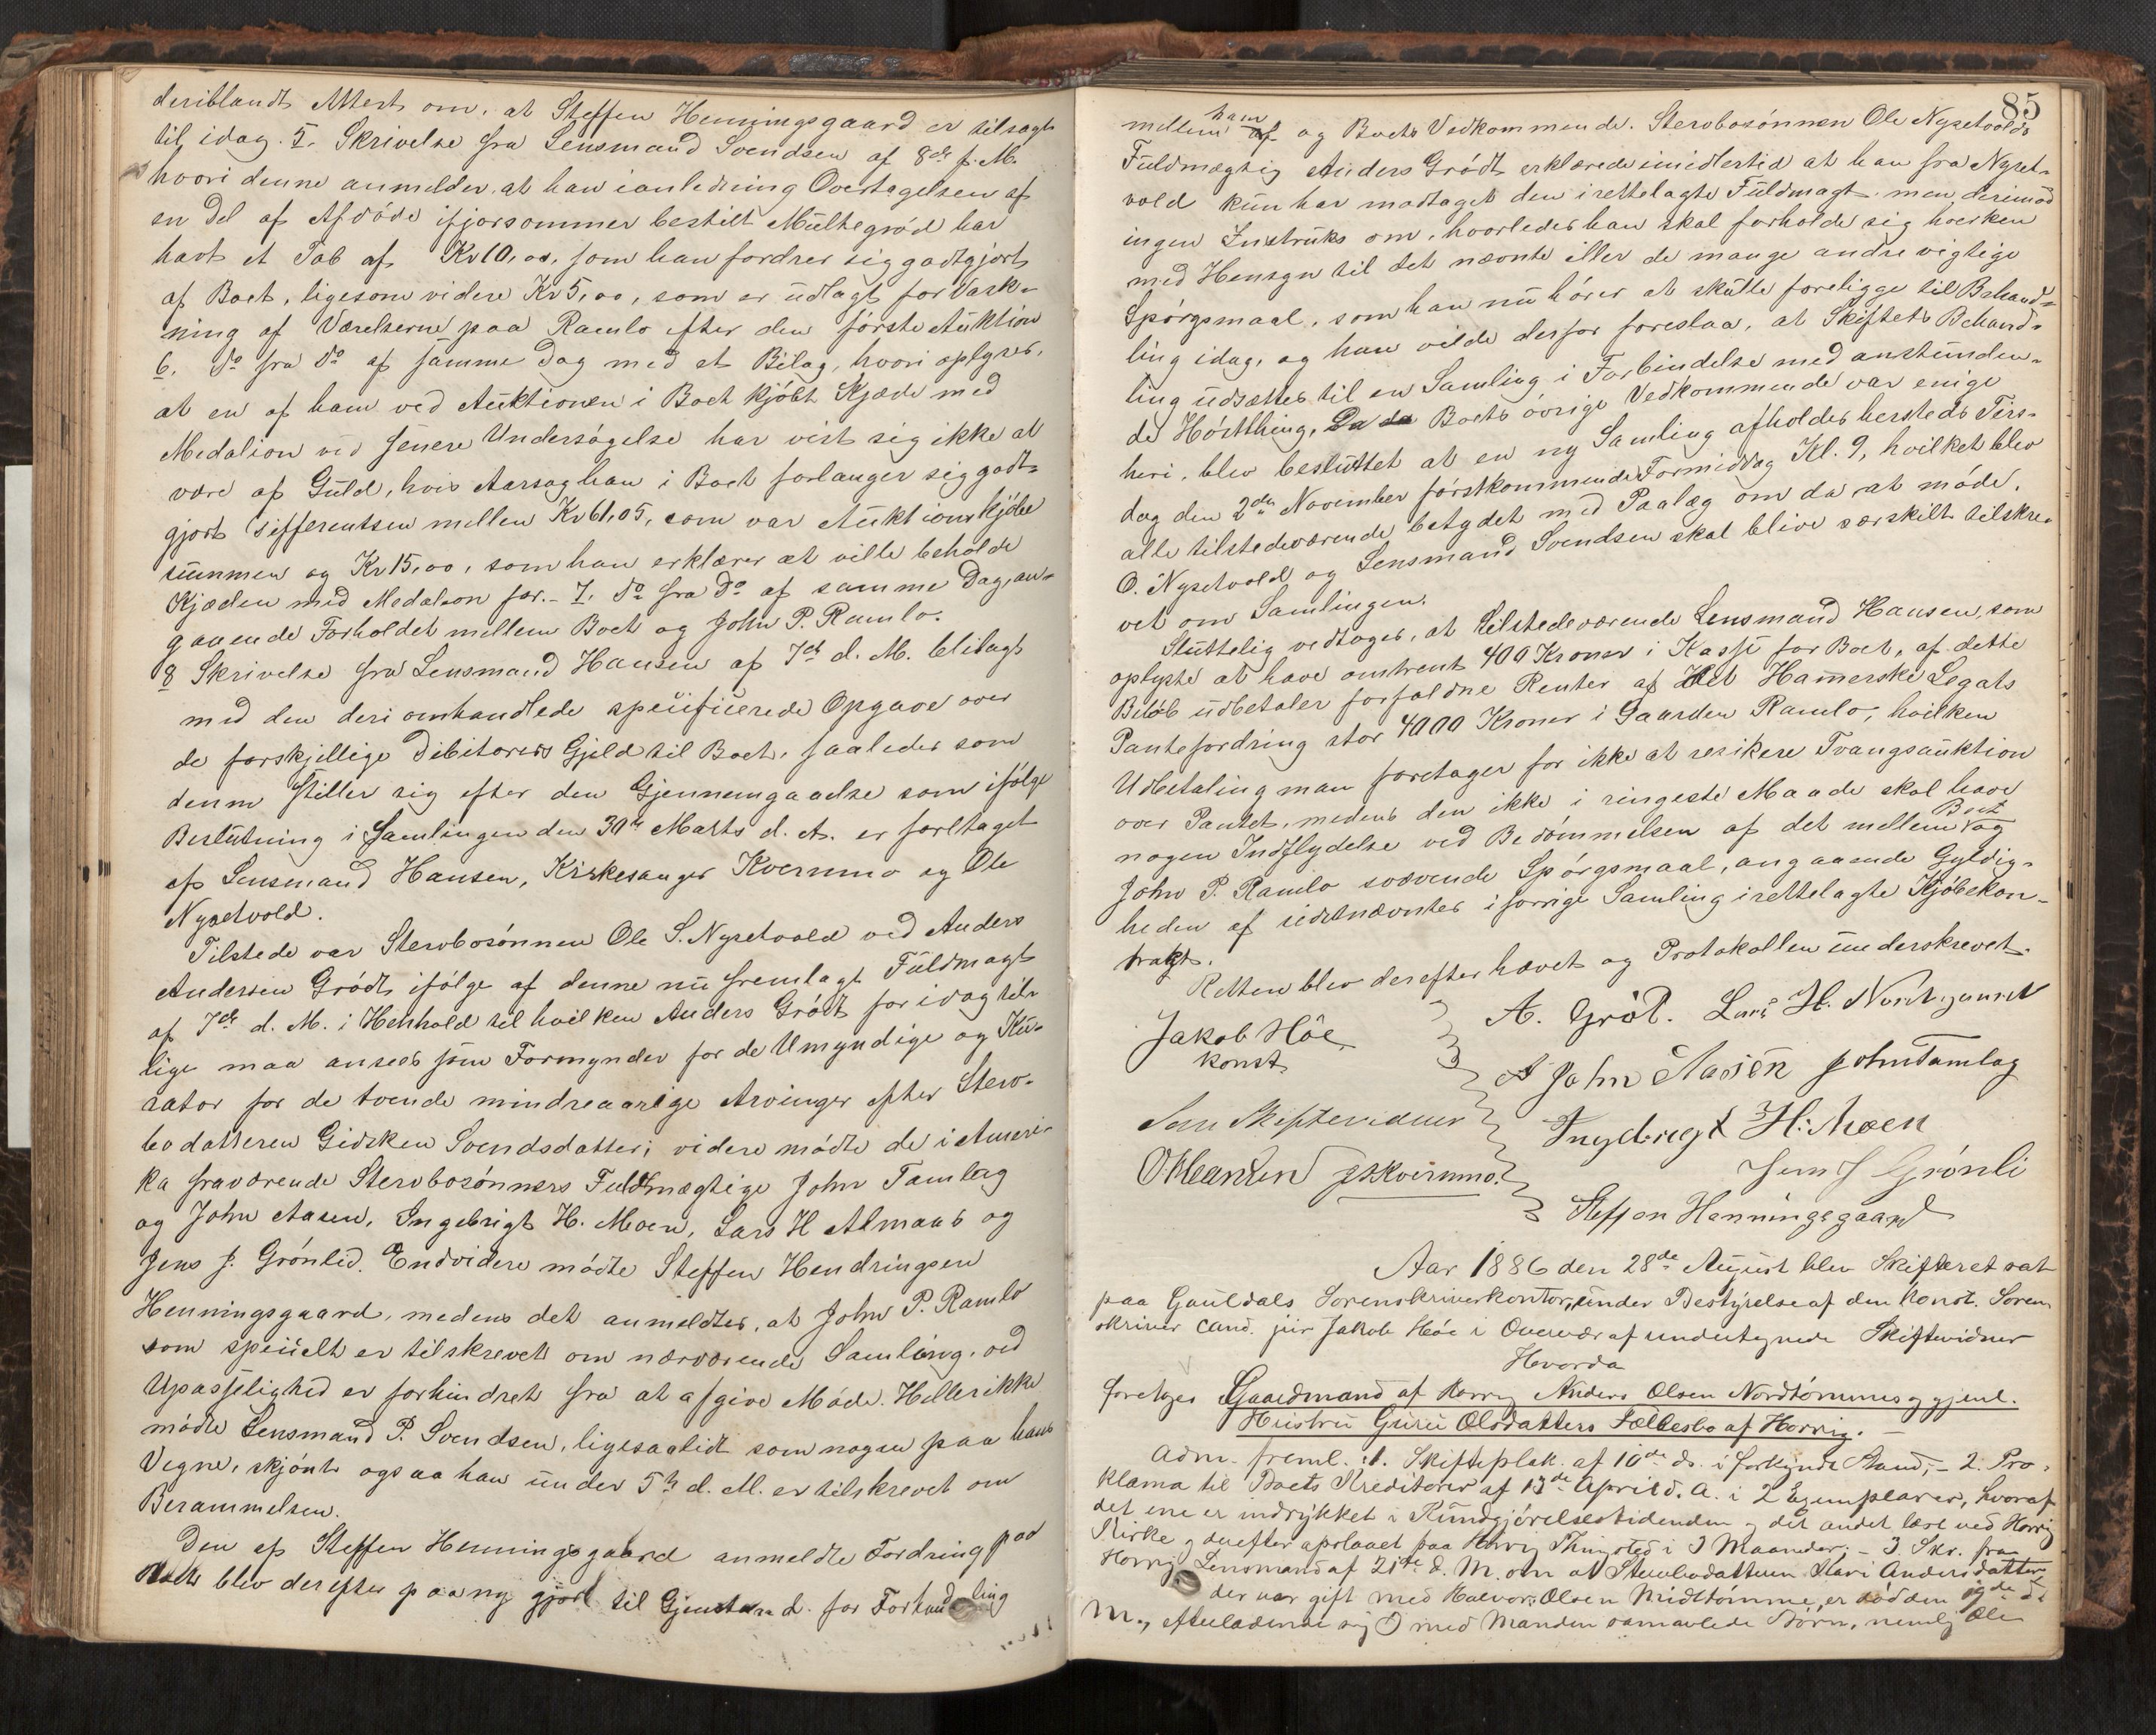 deriblandt Attest om, at Steffen Henningsgaard er tilsagt
til idag. 5. Skrivelse fra Lensmand Svendsen af 8de f. M.
hvori denne anmelder, at han ianledning Overtagelsen af
en Del af Afdøde ifjorsommer bestilt Multegrød har
havt et Tab af Kr 10,00, som han fordrer sig godtgjort
af Boet, ligesom videre Kr 5,00, som er udlagt for Vask-
ning af Værelserne paa Ramlo efter den første Auktion
6. Do fra Do af samme Dag med et Bilag, hvori oplyses,
at en af ham ved Auktionen i Boet kjøbt Kjæde med
Medalion ved senere Undersøgelse har vist sig ikke at
være af Guld, hvis Aarsag han i Boet forlanger sig godt-
gjort Differentsen mellem Kr 61,05, som var Auktionskjøbe
summen og Kr 15,00, som han erklærer at ville beholde
Kjæden med Medaleon for. - 7. Do fra Do af samme Dag, an-
gaaende Forholdet mellem Boet og John P. Ramlo.
8 Skrivelse fra Lensmand Hansen af 7de d. M. bilagt
med den deri omhandlede specificerede Opgave over
de forskjellige Debitorers Gjeld til Boet, saaledes som
denne stiller sig efter den Gjennemgaaelse som ifølge
Beslutning i Samlingen den 30te Marts d. A. er foretaget
af Lensmand Hansen, Kirkesanger Kvernmo og Ole
Nysetvold.
Tilstede var Stervbosønnen Ole S. Nysetvold ved Anders
Andersen Grødt, ifølge af denne nu fremlagt Fuldmagt
af 7de d. M. i Henhold til hvilken Anders Grødt for idag til-
lige maa ansees som Formynder for de Umyndige og Ku-
rator for de tvende mindreaarige Arvinger efter Sterv-
bodatteren Gidsken Svendsdatter; videre mødte de i Ameri-
ka fraværende Stervbosønners Fuldmægtige John Tamlag
og John Aasen, Ingebrigt H. Moen, Lars H Almaas og
Jens J. Grønlid. Endvidere mødte Steffen Hendringsen
Henningsgaard, medens det anmeldtes, at John P. Ramlo
som specielt er tilskrevet om nærværende Samling, ved
Upasselighed er forhindret fra at afgive Møde. Heller ikke
mødte Lensmand P. Svendsen, ligesaalidt som nogen paa hans
Vegne, skjønt ogsaa han under 5te d. M. er tilskrevet om
Berammelsen.
Den af Steffen Henningsgaard anmeldte Fordring paa
Boet blev derefter paany gjort til Gjenstand for Forhandling
85
mellem ham og Boets Vedkommende. Stervbosønnen Ole Nysetvolds
Fuldmægtig Anders Grødt erklærede imidlertid at han fra Nyset-
vold kun har modtaget den irettelagte Fuldmagt, men derimod
ingen Instruks om, hvorledes han skal forholde sig hverken
med Hensyn til det nævnte eller de mange andre vigtige
Spørgsmaal, som han nu hører at skulle foreligge til Behand-
ling idag, og han vilde derfor foreslaa, at Skiftets Behand-
ling udsættes til en Samling i Forbindelse med anstunden-
de Høstthing, Da Boets øvrige Vedkommende var enige
heri, blev besluttet at en ny Samling afholdes hersteds Tirs-
dag den 2den November førstkommende Formiddag Kl. 9, hvilket blev
alle tilstedeværende betydet med Paalæg om da at møde.
O. Nysetvold og Lensmand Svendsen skal blive særskilt tilskre-
vet om Samlingen.
Sluttelig vedtoges, at tilstedeværende Lensmand Hansen, som
oplyste at have omtrent 400 Kroner i Kasse for Boet, af dette
Beløb udbetaler forfaldne Renter af Det Hammerske Legats
Pantefordring stor 4000 Kroner i Gaarden Ramlo, hvilken
Udbetaling man foretager for ikke at resikere Tvangsauktion
over Pantet, medens den ikke i ringeste Maade skal have
nogen Indflydelse ved Bedømmelsen af det mellem Boet og
John P. Ramlo svævende Spørgsmaal, angaaende Gyldig-
heden af sidstnævntes i forrige Samling irettelagte Kjøbekon-
trakt.
Retten blev derefter hævet og Protokollen underskrevet.
Jakob Høe
konst.
A. Grøt. Lars H.
John Aasen John Tamlag
Som Skiftevidner
Ingebrigt H. Moen
OMHansen JKvernmo.
Jens J Grønli
Steffen Henningsgaard
Aar 1886 den 28de August blev Skifteret sat
paa Gauldals Sorenskriverkontor, under Bestyrelse af den konst. Soren
skriver cand. jur Jakob Høe i Overvær af undertegnede Skiftevidner
Hvorda
foretages Gaardmand af Horrig Anders Olsen Nordtømmes og gjenl.
Hustru Guru Olsdatters Fællesbo af Horrig. -
Adm. freml.: 1. Skifteplak. af 10de ds. i forkyndt Stand; - 2. Pro-
klama til Boets Kreditorer af 13de April d. A. i 2 Exemplarer, hvoraf
det ene er indrykket i Kundgjørelsestidenden og det andet læst ved Horrig
Kirke og derefter opslaaet paa Horrig Thingsted i 3 Maaneder; - 3. Skr. fra
Horrig Lensmand af 21de d. M. om at Stervbodatteren Mari Andersdatter,
der var gift med Halvor Olsen Midttømme, er død den d.
M., efterladende sig med Manden samavlede Børn, nemlig Ole